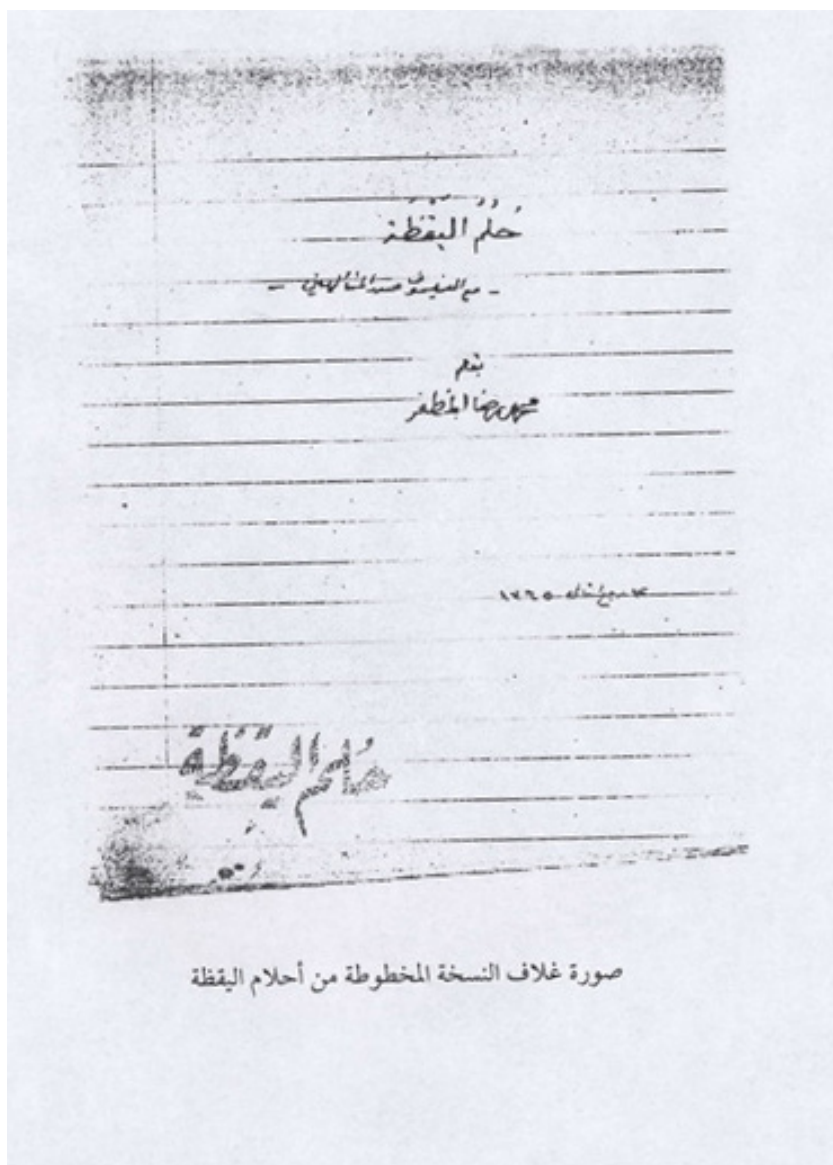 حُلم اليقظة
- مع الفيلسوف صدر المتألهين -
بقلم
محمد رضا المظفر
ربيع الثاني ١٣٦٥
حُلم اليقظة
صورة غلاف النسخة المخطوطة من أحلام اليقظة